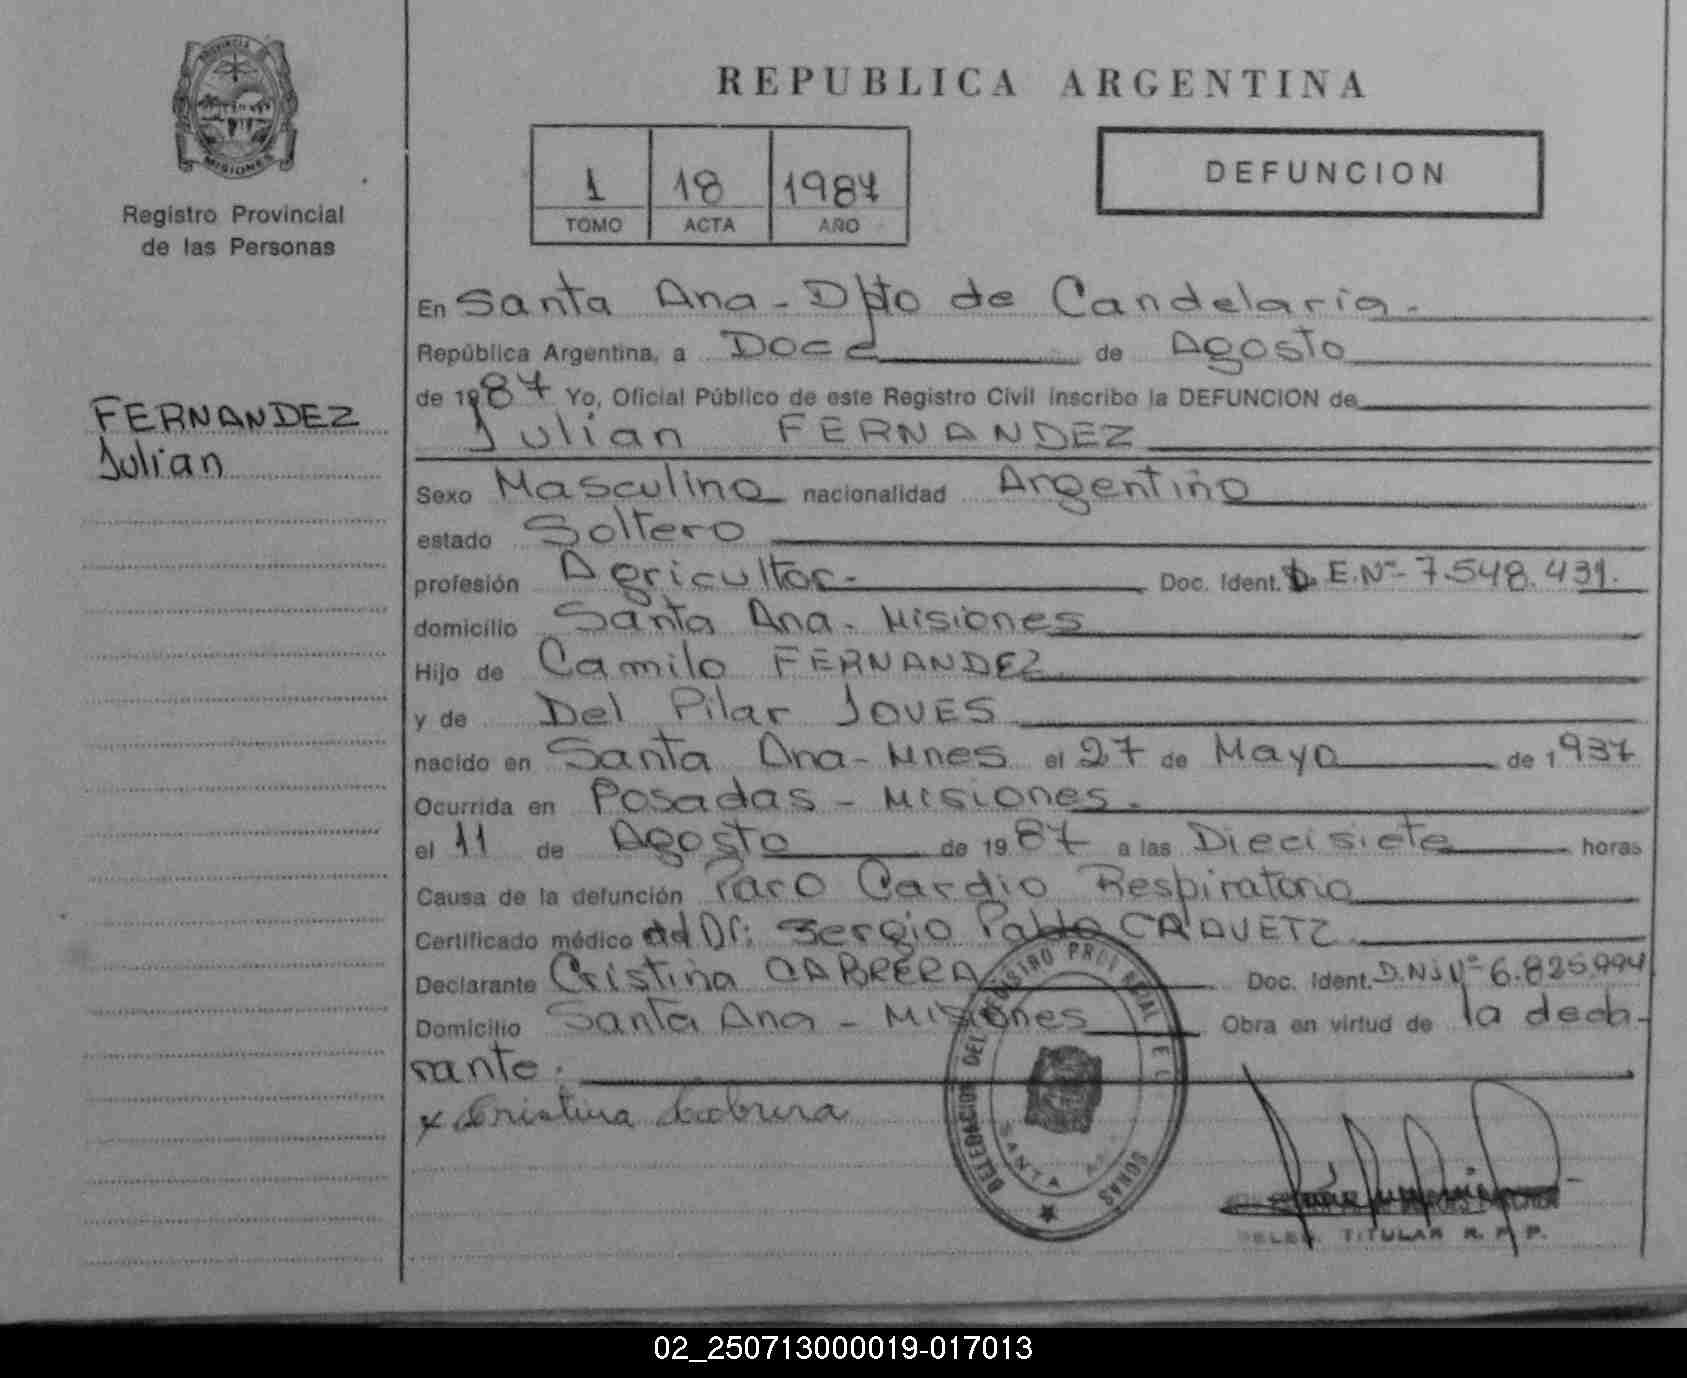 PROVINCIA DE
MISIONES
Registro Provincial
de las Personas
FERNANDEZ
Julian
REPUBLICA ARGENTINA
1 18 1987
TOMO ACTA AÑO
DEFUNCION
En Santa Ana - Dpto de Candelaria.
República Argentina, a Doce de Agosto
de 1987 Yo, Oficial Público de este Registro Civil inscribo la DEFUNCION de
Julian FERNANDEZ
Sexo Masculino nacionalidad Argentino
estado Soltero
profesión Agricultor. Doc. Ident. L. E. Nº 7.548.431.
domicilio Santa Ana - Misiones
Hijo de Camilo FERNANDEZ
y de Del Pilar JOVES
nacido en Santa Ana - Mnes el 27 de Mayo de 1937
Ocurrida en Posadas - Misiones.
el 11 de Agosto de 1987 a las Diecisiete horas
Causa de la defunción Paro Cardio Respiratorio
Certificado médico del Dr: Sergio Pablo
Declarante Cristina CABRERA Doc. Ident. D.N.I Nº 6.825.994
Domicilio Santa Ana - Misiones Obra en virtud de la decla-
rante.
x Cristina Cabrera
DELEGACION DEL REGISTRO PROVINCIAL
SANTA
TITULAR R. P. P.
02_250713000019-017013